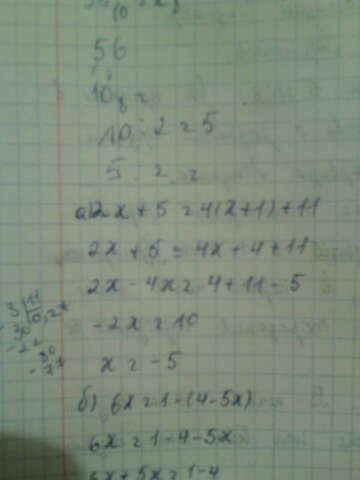 56
10
10 : 2 = 5
5
а) 2x + 5 = 4(x+1) + 11
2x + 5 = 4x + 4 + 11
2x - 4x = 4 + 11 - 5
-2x = 10
x = -5
б) 6x = 1 - (4 - 5x)
6x = 1 - 4 - 5x
6x + 5x = 1 - 4
3 11
30 0,27
22
80
77